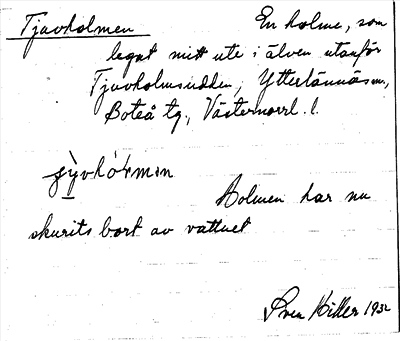 Tjuvholmen En holme, som
legat mitt ute i älven utanför
Tjuvholmsudden, Ytterlännäs sn,
Boteå tg., Västernorrl. l.
Holmen har nu
skurits bort av vattnet
Sven Hiller 1932